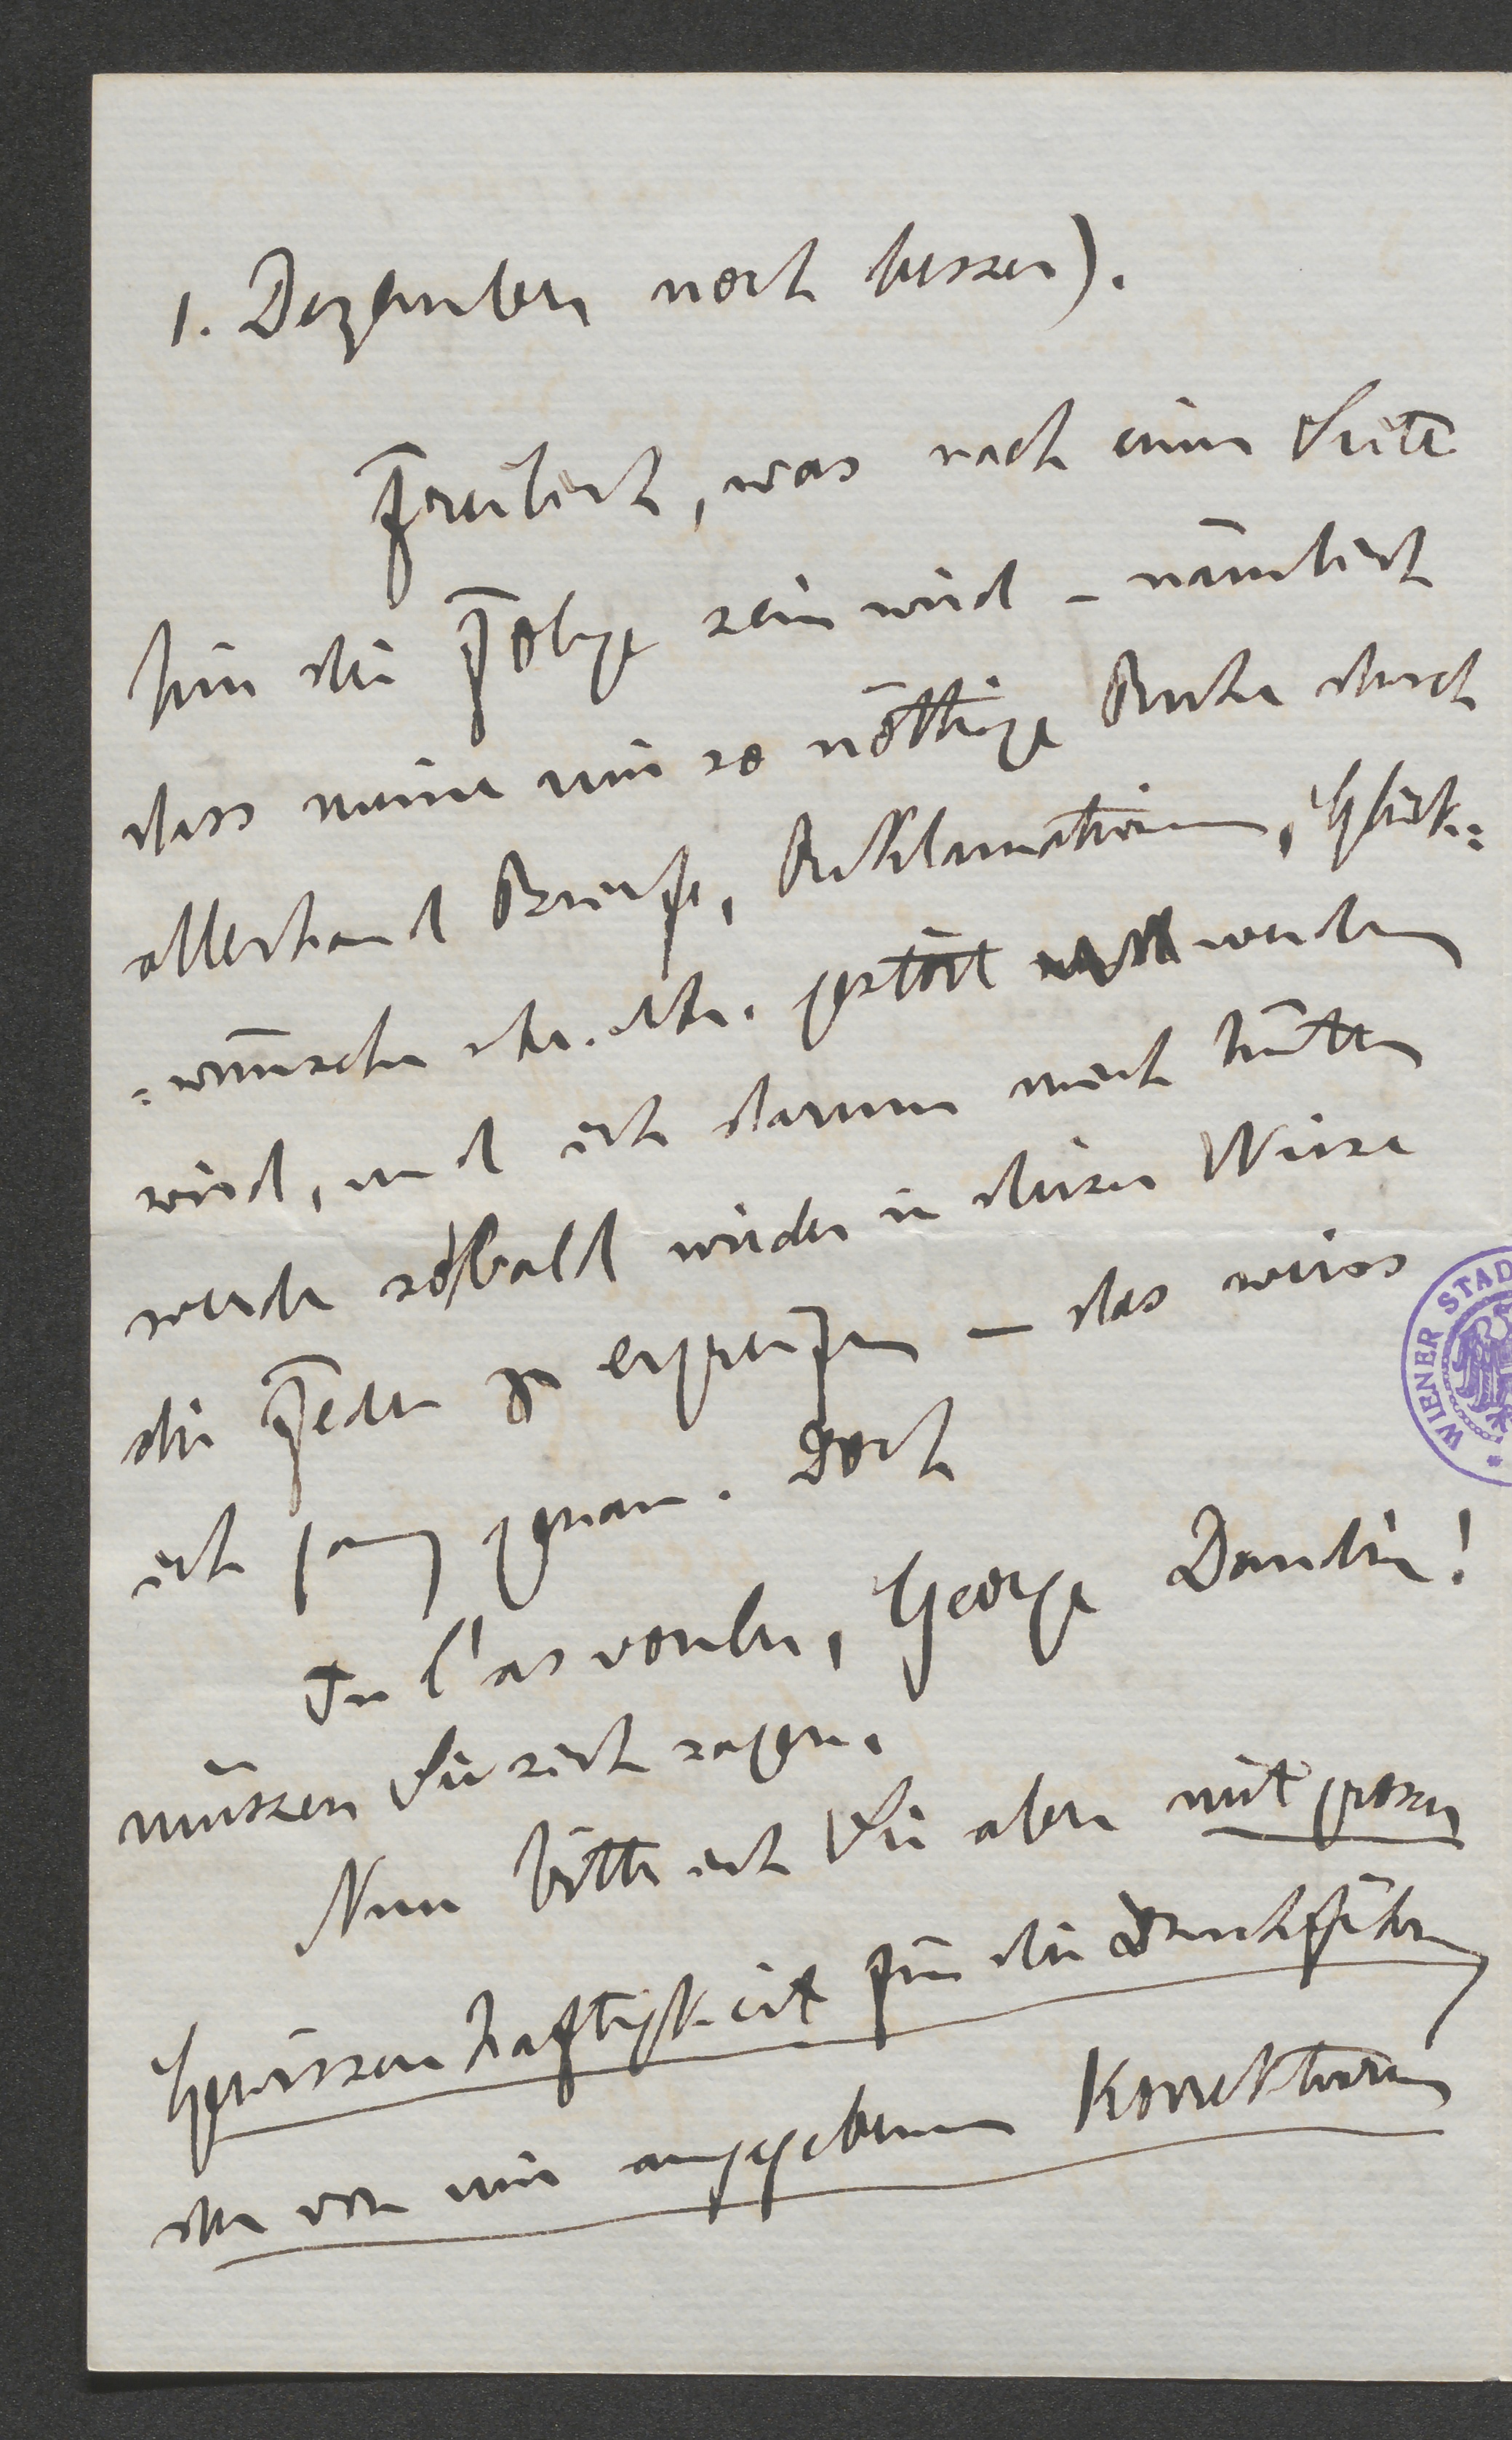 1. Dezember noch besser).
Freilich, was nach einer Seite
hin die Folge sein wird – nämlich
dass meine mir so nöthige Ruhe durch
allerhand Briefe, Reklamationen, Glück=
=wünsche etc. etc. gestört werden
wird, und ich darum mich hüten
werde sobald wieder in dieser Weise
die Feder zu ergreifen – das weiss
ich ganz genau. Doch
Tu l'as voulu, George Dandin!
müssen Sie sich sagen.
Nun bitte ich Sie aber mit grosser
Gewissenhaftigkeit für die Durchführung
der von mir angegebenen Korrekturen
WIENER STAD